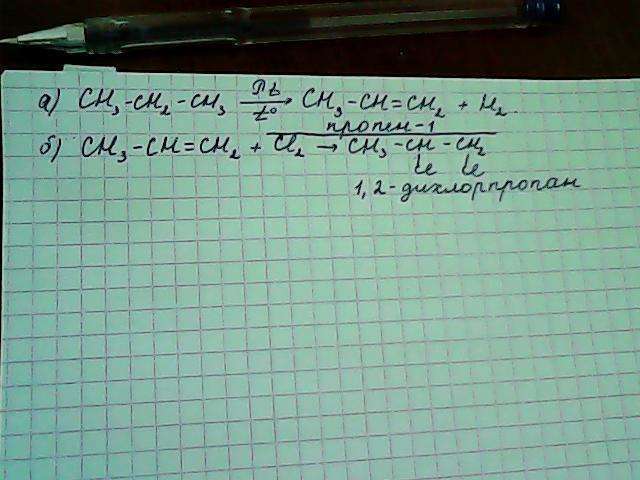 а) CH₃-CH₂-CH₃ Pt t° → CH₃-CH=CH₂ + H₂
пропен-1
б) CH₃-CH=CH₂ + Cl₂ → CH₃-CH-CH₂
Cl Cl
1,2-дихлорпропан